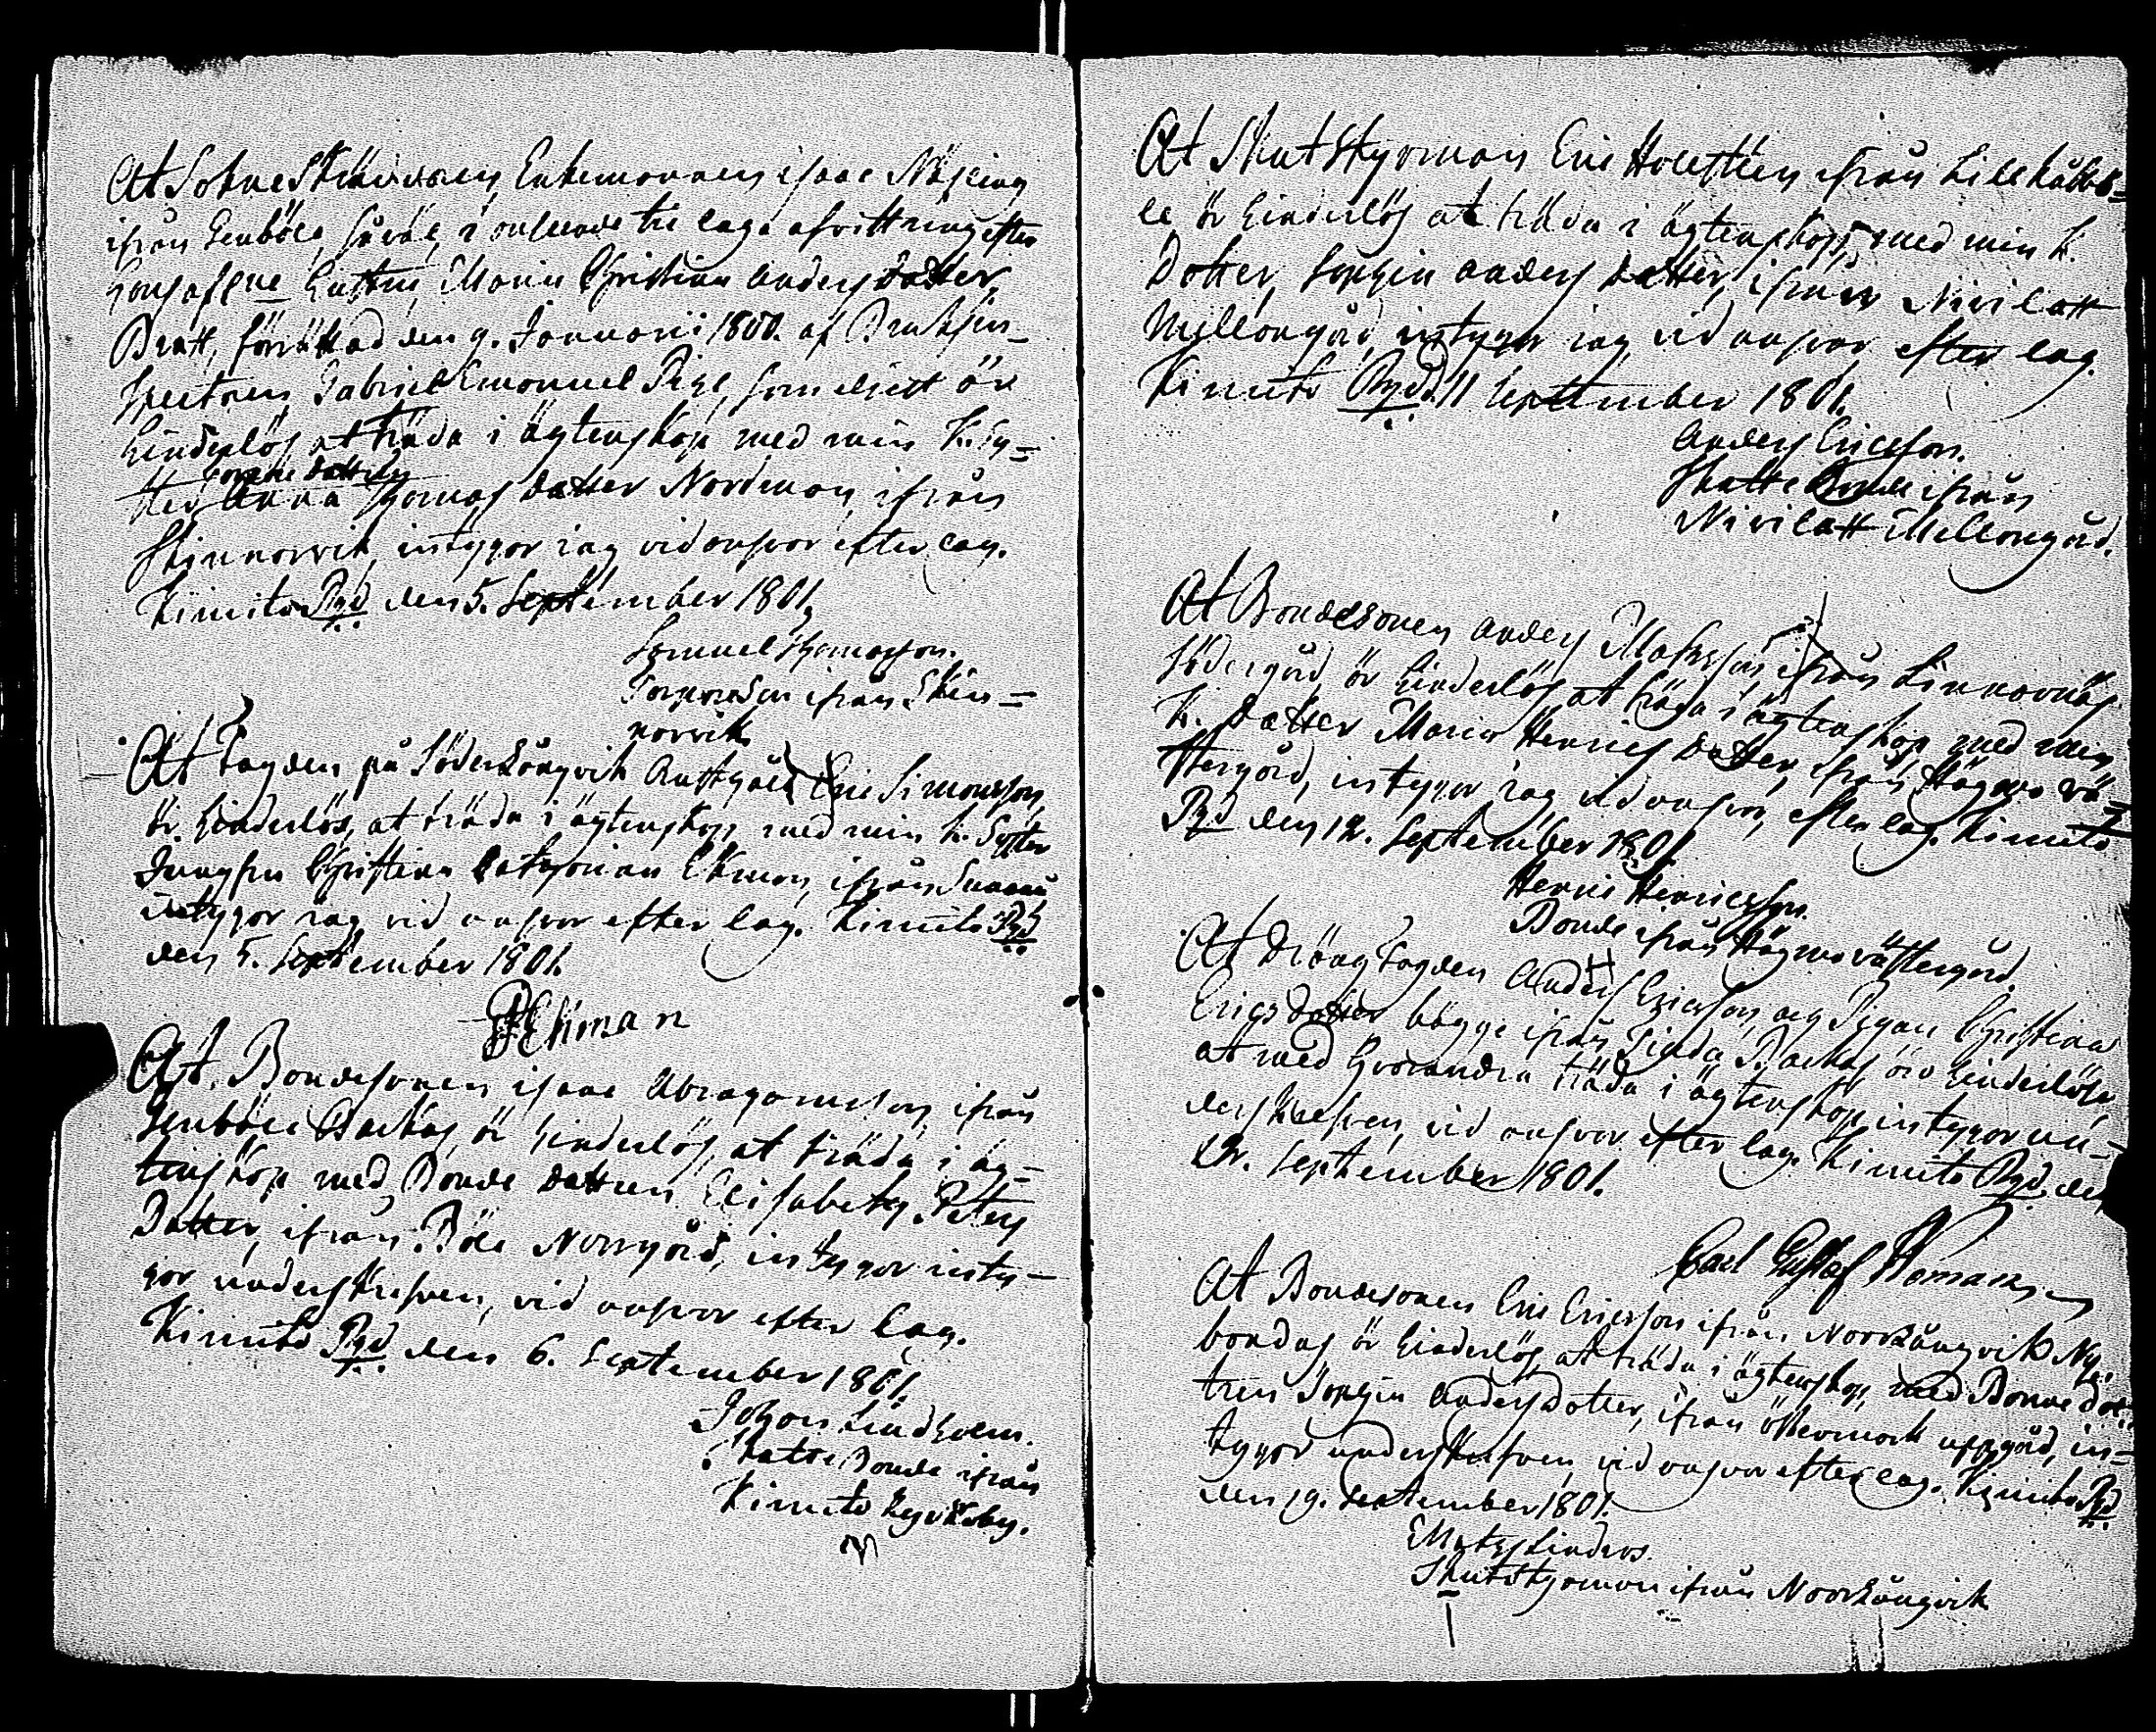 At Sokne Skräddaren, Enkemannen Isaac
ifrån Genböle, såväl i anseende til laga afvittring efter
hans afledne hustru Maria Christina Anders dotter
Bratt, förrättad den 9. Januarii 1800. af Bruksin-
spectoren Gabriel Emanuel, som eljest är
hinderlös at träda i ägtenskap med min K. Sy-
ster Anna Thomas dotter Nordman, ifrån
Skinnarvik, intygar jag vid ansvar efter lag.
Kimito Pzd den 5. September 1801.
Samuel Thomasson.
ifrån Skin-
narvik
At Fogden på Söderlångvik Rusthåll Eric Simonsson,
är hinderlös, at träda i ägtenskap med min k. Syster
Jungfru Christina Catharina Ekman, ifrån
intygar jag vid ansvar efter lag. Kimito Pzd
den 5. September 1801.
Ekman
At Bondesonen Isaac Abrahamsson, ifrån
Genböle Backas, är hinderlös, at träda i äg-
tenskap med Bonde dottren Elisabeth Peters
Dotter, ifrån Böle Norrgård, intygar inty-
gar underskrifven, vid ansvar efter lag.
Kimito Pzd den 6. September 1801.
Johan Lindholm.
Skatte Bonde ifrån
Kimito Kyrkoby.
At Skutskyrman Eric Hollsten ifrån
le är hinderlös at träda i ägtenskap, med min k.
Dotter, Sophia Anders dotter, ifrån Nivilatt
Mellangård, intygar jag vid ansvar efter lag.
Kimito Pzd. 11 September 1801.
Anders Ericsson.
Skatte Bonde ifrån
Nivilatt Mellangård.
At Bondesonen Anders Matsson, ifrån Linnarnäs
Södergård är hinderlös, at träda i ägtenskap med min
K. Dotter Maria Henrics Dotter, ifrån Högmo vä-
stergård, intygar jag vid ansvar, efter lag. Kimito
Pzd den 12. September 1801
Henric Henricsson.
Bonde ifrån Högmo västergård.
At Drängfogden Anders Ericsson, och Pigan Christina
Ericsdotter bägge ifrån Backas äro hinderlöse,
at med hvarandra träda i ägtenskap, intygar un-
derskrefven, vid ansvar efter lag. Kimito Pzd. den
12. September 1801.
Carl Gustaf Homan
At Bondesonen Eric Ericsson ifrån Norrlångvik Ny-
bondas är hinderlös, at träda i ägtenskap, med Bonde dot-
tren Sophia Anders Dotter, ifrån Östermark uppgård, in-
tygar underskrifven, vid ansvar efter lag. Kimito Pzd
den 19. September 1801.
Mats Linders
Skutskyrman ifrån Norrlångvik